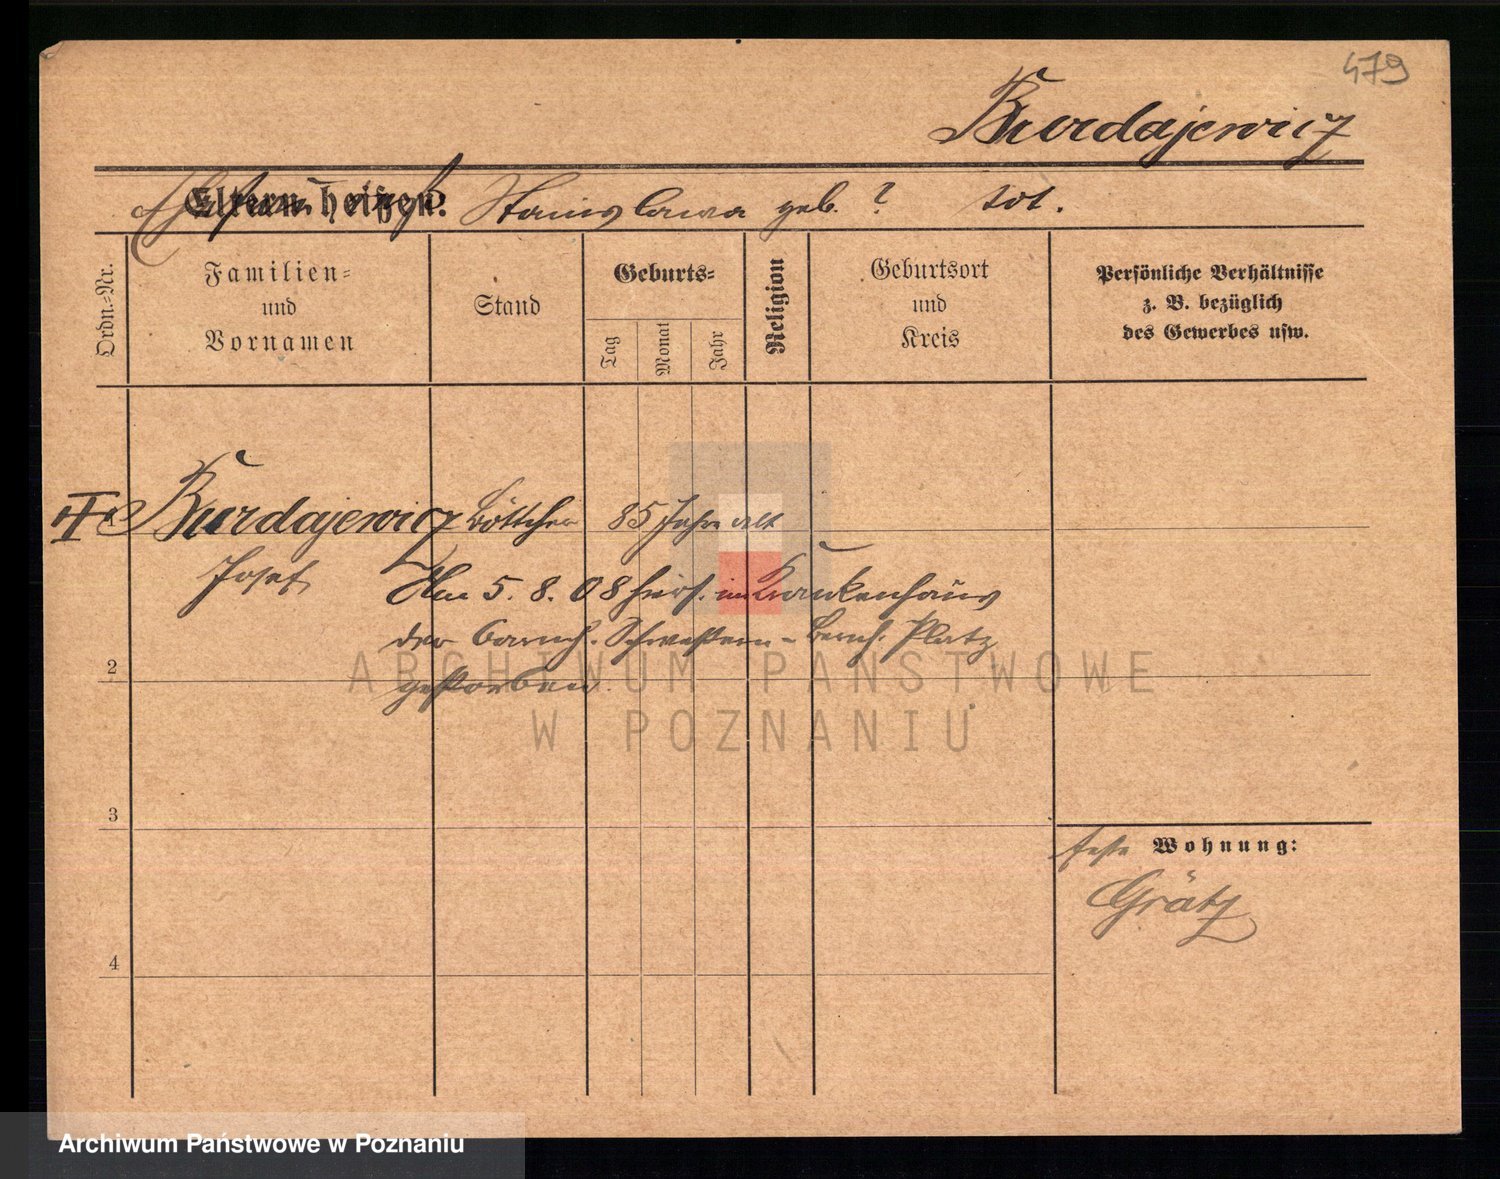 479
Burdajewicz
Eltern heißen:
Stanislawa geb. ? tot.
Ordn.-Nr.
Familien-
und
Vornamen
Stand
Geburts-
Tag
Monat
Jahr
Religion
Geburtsort
und
Kreis
Persönliche Verhältnisse
z. B. bezüglich
des Gewerbes usw.
Burdajewicz Böttcher 85 Jahre alt
Josef
Am 5. 8. 08 hier im Krankenhaus
der barmh. Schwestern - Bernh. Platz
gestorben.
2
3
4
feste Wohnung:
Grätz
ARCHIWUM PAŃSTWOWE
W POZNANIU
Archiwum Państwowe w Poznaniu